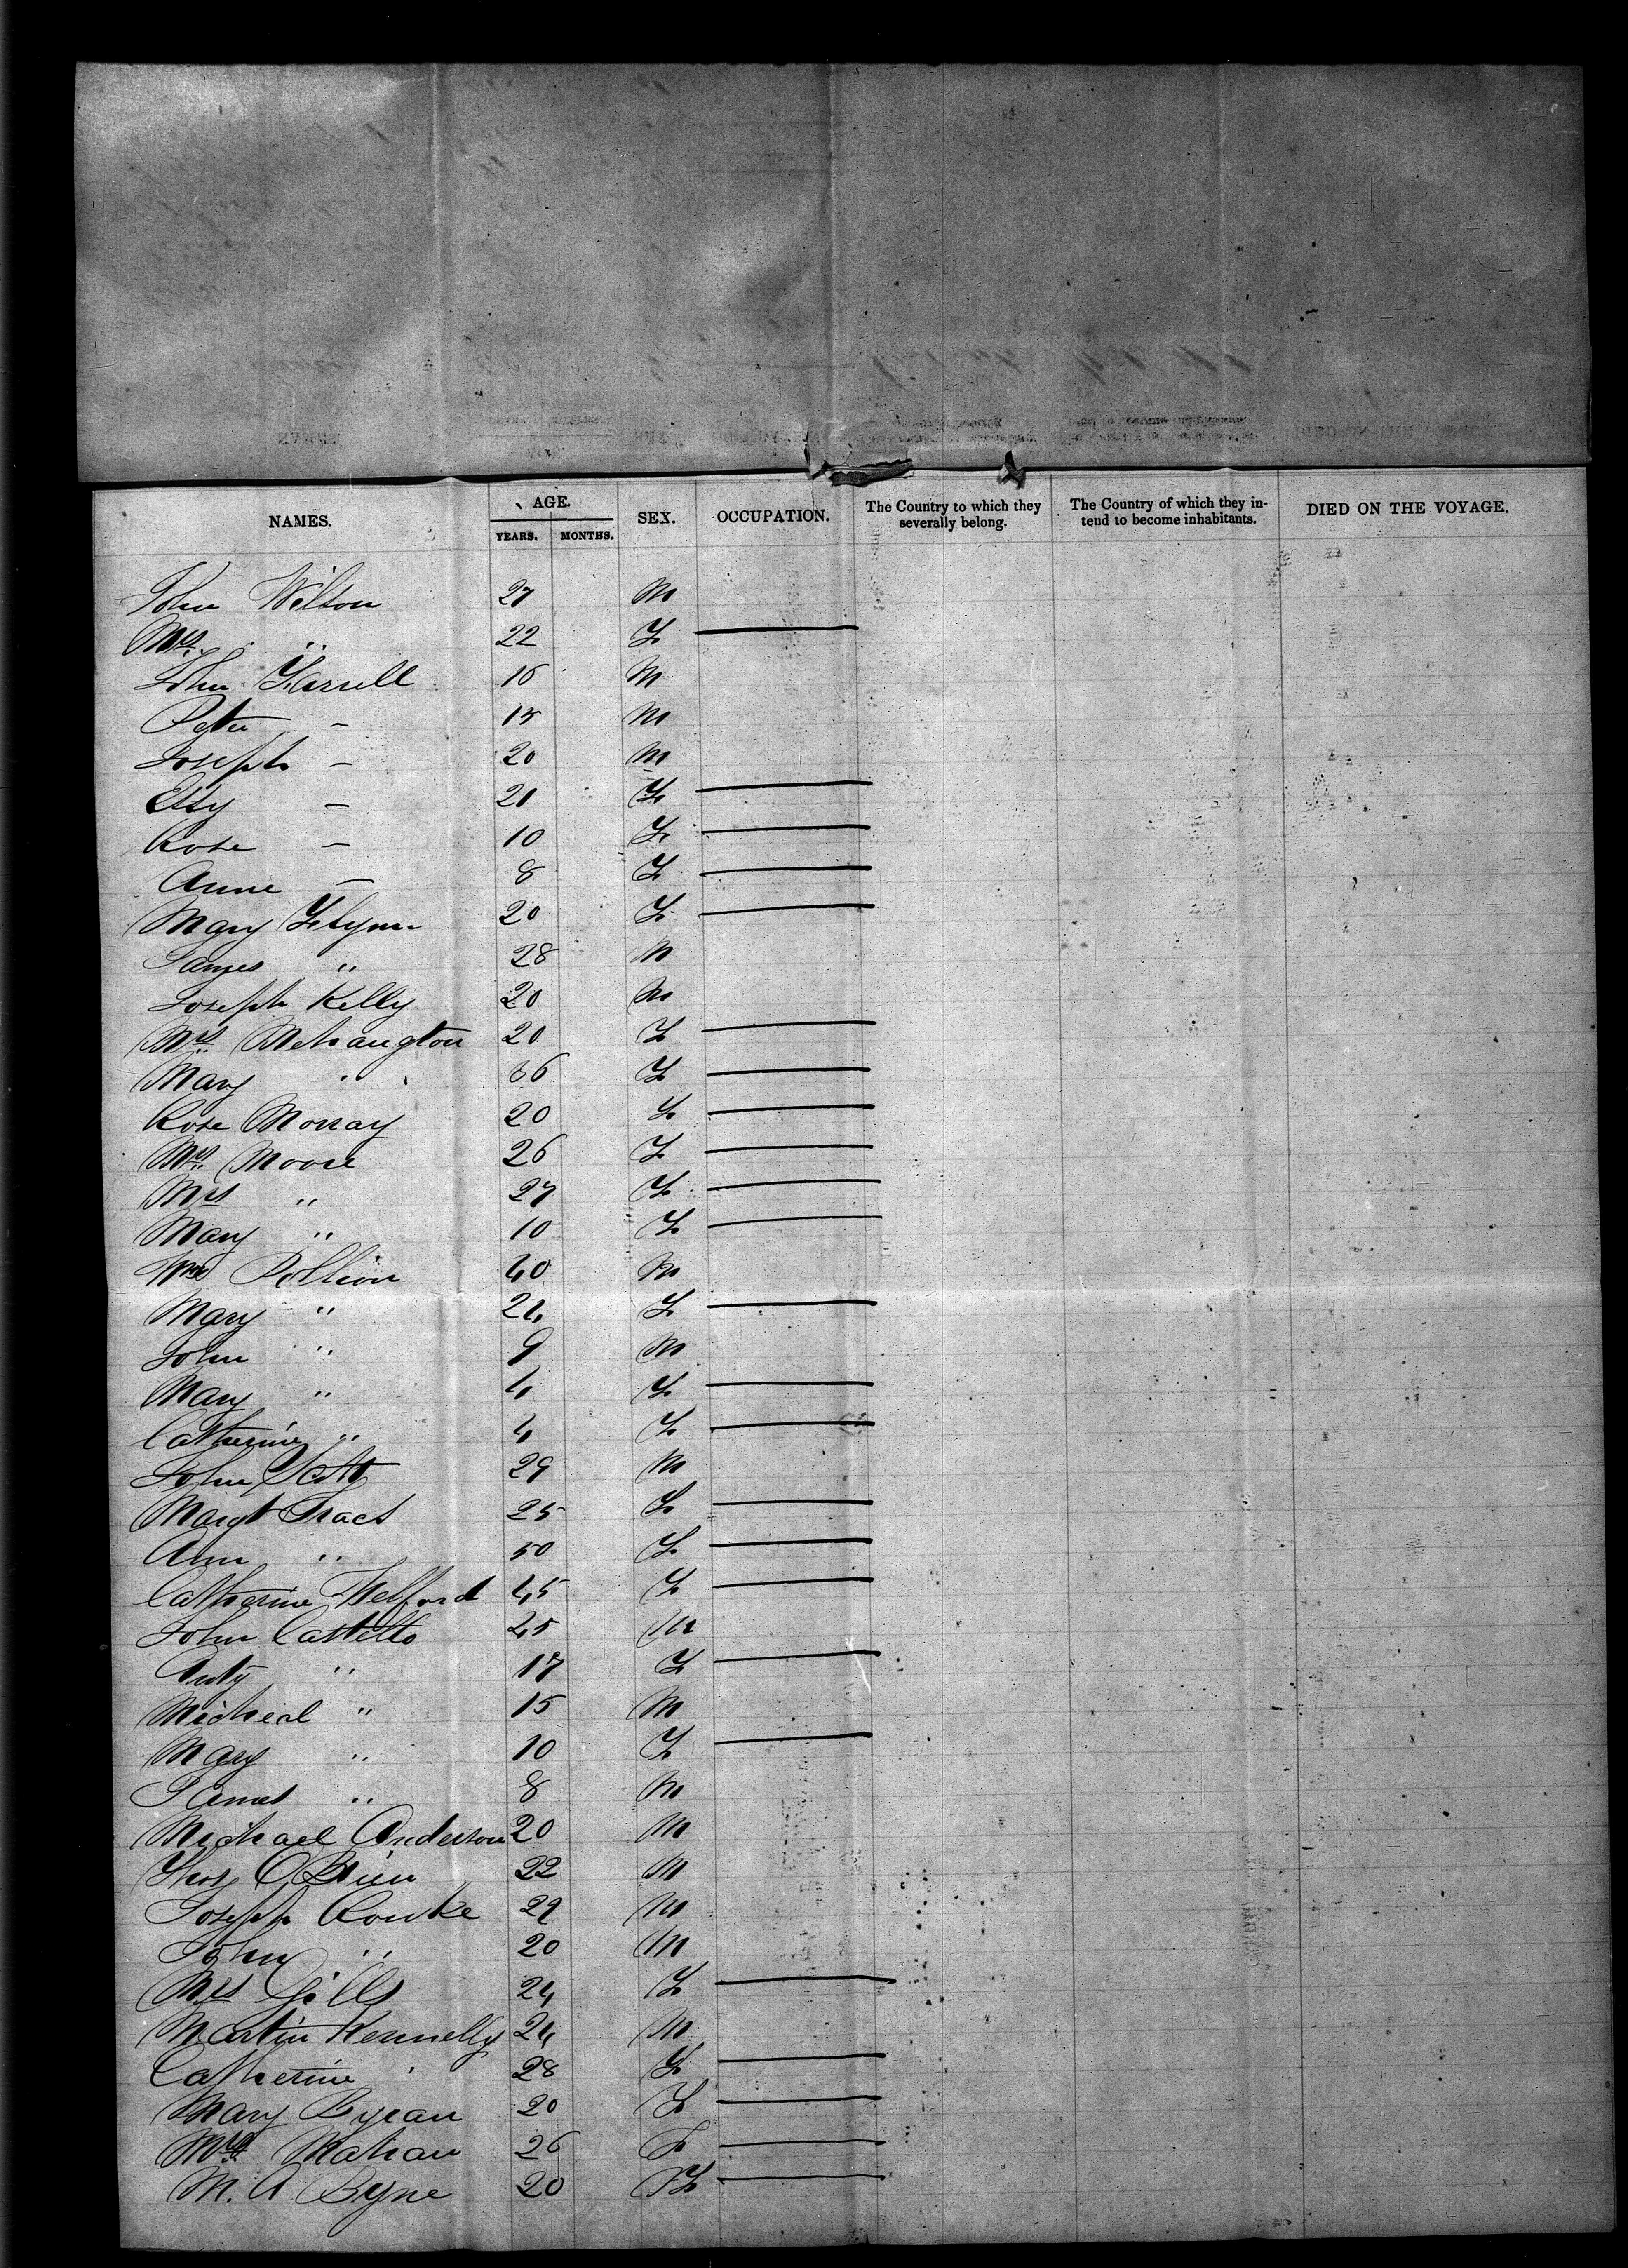 NAMES. AGE. SEX. OCCUPATION. The Country to which they severally belong. The Country of which they intend to become inhabitants. DIED ON THE VOYAGE.
YEARS. MONTHS.
John Wilton 27 M
Mrs. " 22 F
John Farrell 16 M
Peter - 15 M
Joseph - 20 M
Essy - 21 F
Rose - 10 F
Anne - 8 F
Mary Flynn 20 F
James " 28 M
Joseph Kelly 20 M
Mrs 20 F
Mary " 36 F
Rose Morray 20 F
Mrs. Moore 26 F
Mrs " 27 F
Mary " 10 F
40 M
Mary " 24 F
John " 9 M
Mary " 4 F
Catherine " 4 F
John Scott 29 M
Margt Tract 25 F
Ann " 50 F
Catherine Telford 45 F
John Castello 45 M
" 17 F
Micheal " 15 M
Mary " 10 F
James " 8 M
Michael Anderson 20 M
Thos O Brien 22 M
Joseph Rourke 29 M
John " 20 M
Mrs Gills 24 F
Martin Kennelly 24 M
Catherine " 28 F
Mary Byran 20 F
Mrs Mahan 26 F
M. A Byne 20 F